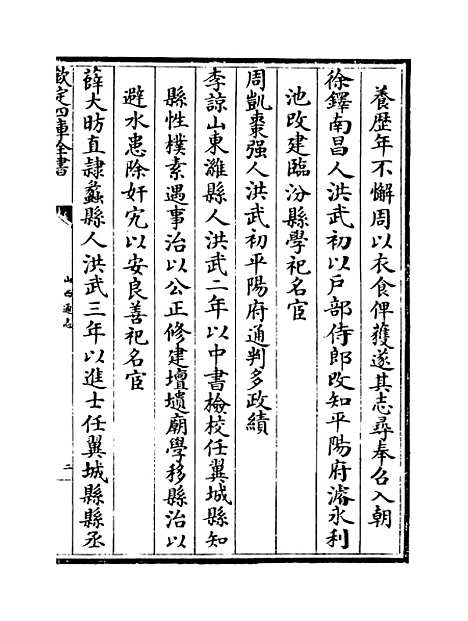 養歴年不懈周以衣食俾獲遂其志尋奉召入朝
徐鐸南昌人洪武初以戶部侍郎改知平陽府濬永利
池改建臨汾縣學祀名宦
周凱棗强人洪武初平陽府通判多政績
李諒山東濰縣人洪武二年以中書檢校任翼城縣知
縣性樸素遇事治以公正修建壇壝廟學移縣治以
避水患除奸宄以安良善祀名宦
薛大昉直隷蠡縣人洪武三年以進士任翼城縣縣丞
欽定四庫全書
山西通志
二